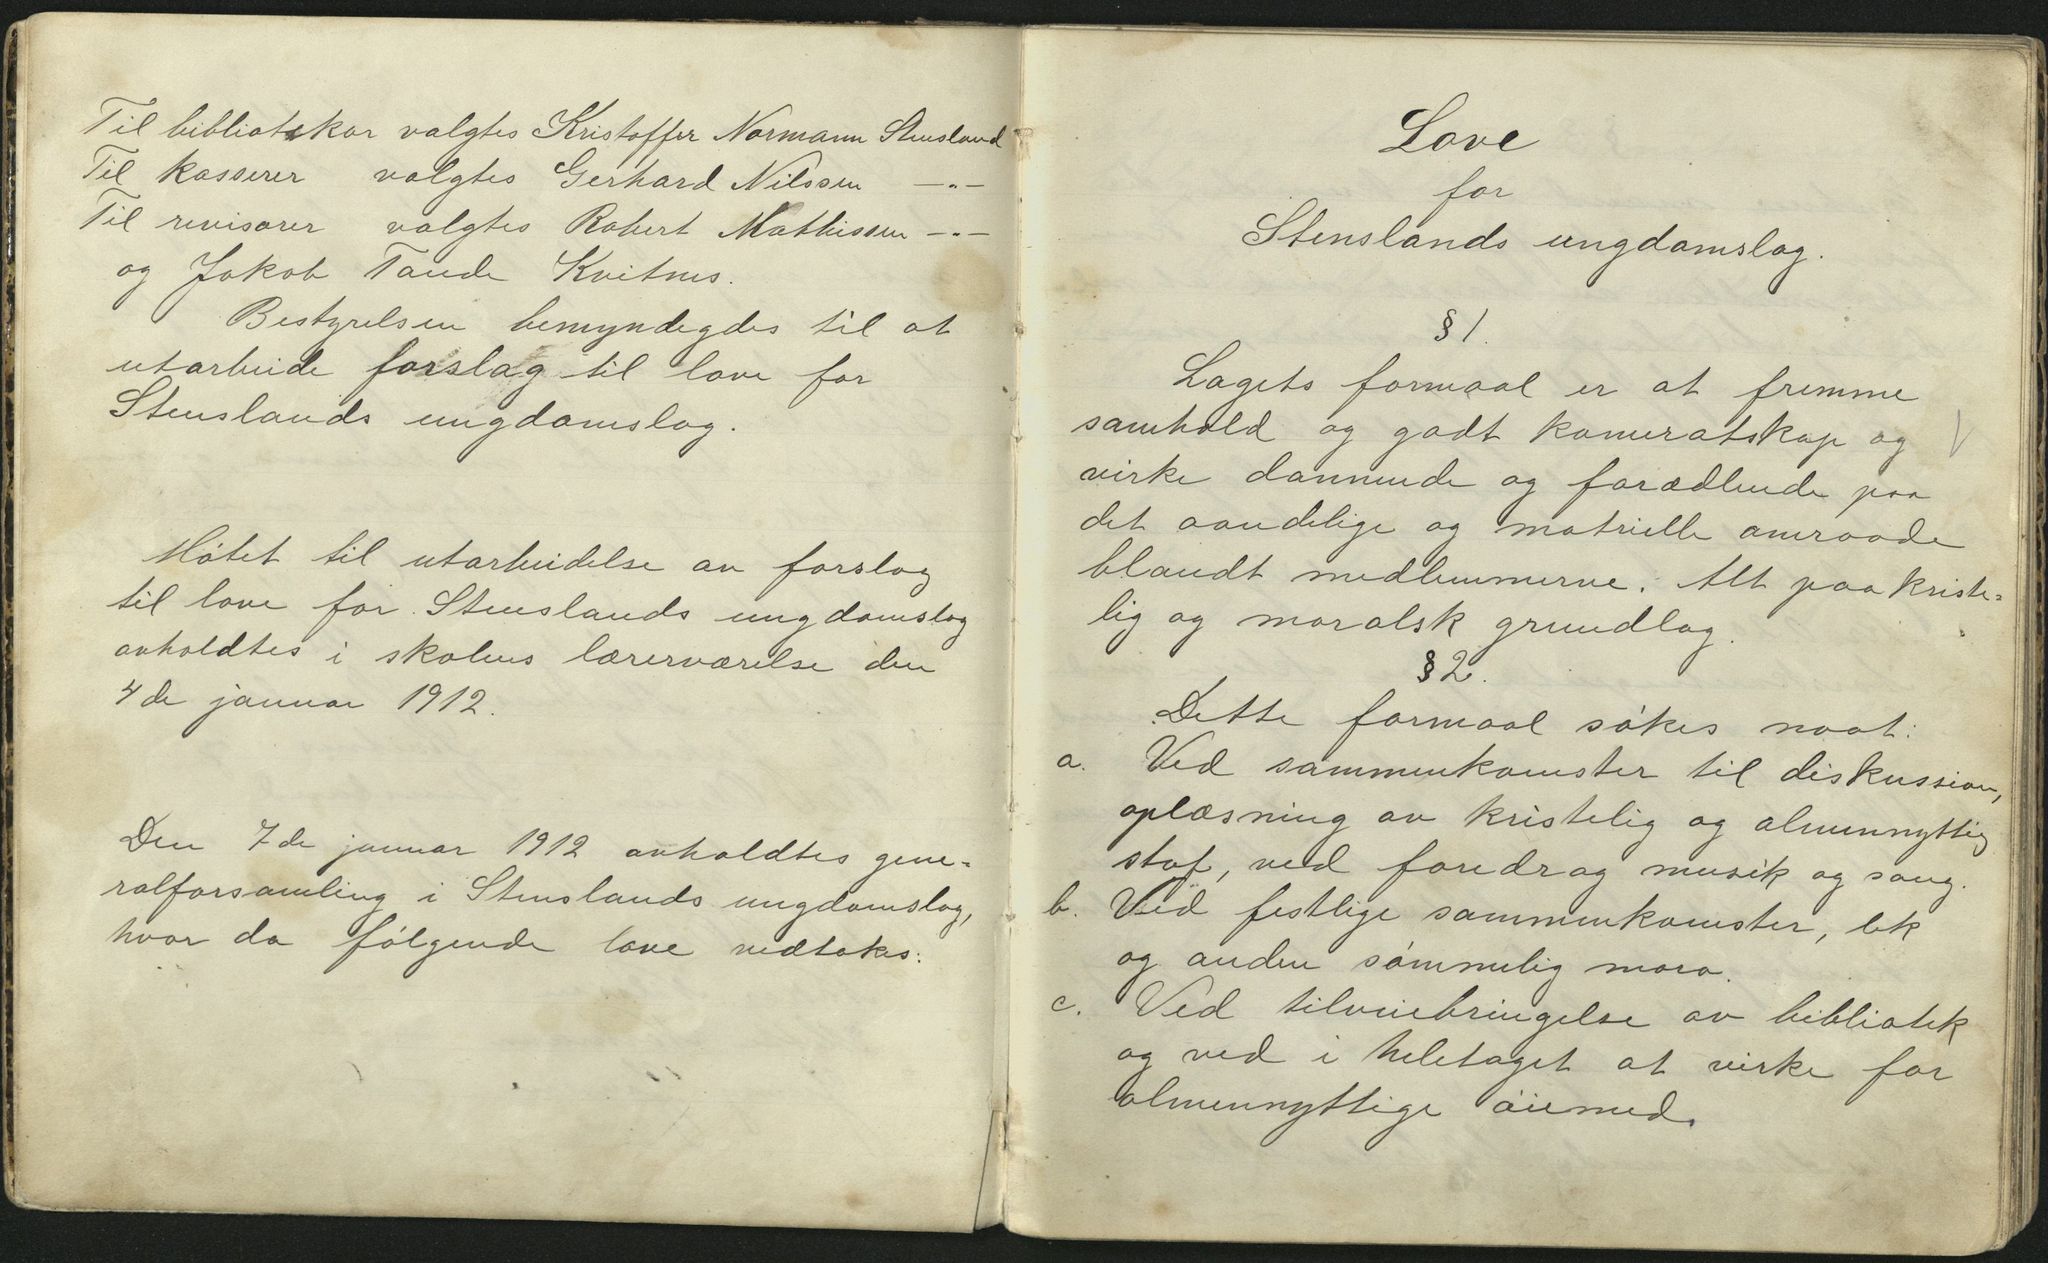 Til bibliotekar valgtes Kristoffer Normann Stensland
Til kasserer valgtes Gerhard Nilssen —"—
Til revisorer valgtes Robert Mathissen —"—
og Jakob Tande Kvitnes.
Bestyrelsen bemyndegdes til at
utarbeide forslag til love for
Stenslands ungdomslag.
Møtet til utarbeidelse av forslag
til love for Stenslands ungdomslag
avholdtes i skolens lærerværelse den
4de januar 1912.
Den 7de januar 1912 avholdtes gene-
ralforsamling i Stenslands ungdomslag,
hvor da følgende love vedtokes:
Love
for
Stenslands ungdomslag.
§ 1.
Lagets formaal er at fremme
samhold og godt kameratskap og
virke dannende og forædlende paa
det aandelige og matrielle omraade
blandt medlemmerne. Alt paa kriste=
lig og moralsk grundlag.
§ 2.
Dette formaal søkes naat:
a. Ved sammenkomster til diskussion,
oplæsning av kristelig og almennyttig
stof, ved foredrag musik og sang.
b. Ved festlige sammenkomster, lek
og anden sømmelig moro.
c. Ved tilveiebringelse av bibliotek
og ved i heletaget at virke for
almennyttige øiemed.